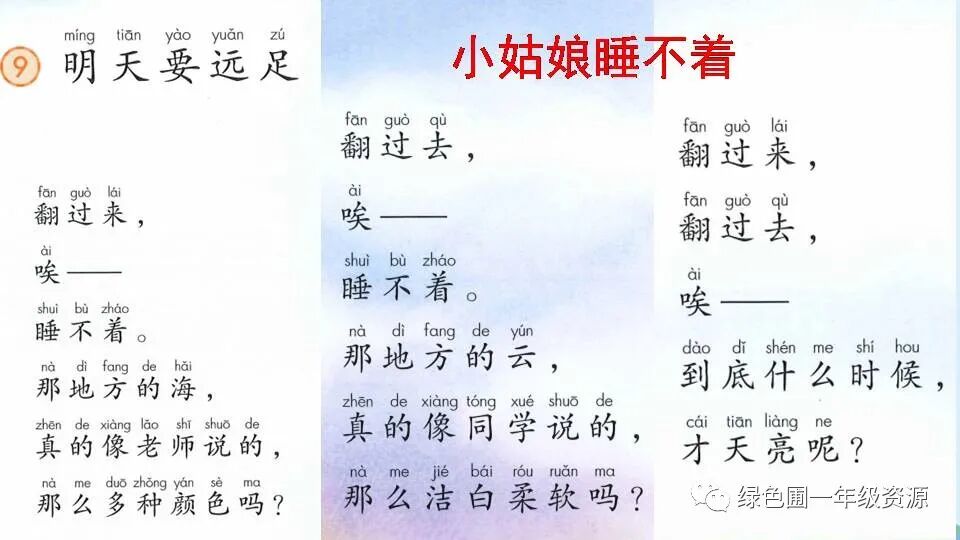 míng tiān yào yuǎn zú
9 明天要远足
fān guò lái
翻过来，
ài
唉——
shuì bù zháo
睡不着。
nà dì fang de hǎi
那地方的海，
zhēn de xiàng lǎo shī shuō de
真的像老师说的，
nà me duō zhǒng yán sè ma
那么多种颜色吗？
小姑娘睡不着
fān guò qù
翻过去，
ài
唉——
shuì bù zháo
睡不着。
nà dì fang de yún
那地方的云，
zhēn de xiàng tóng xué shuō de
真的像同学说的，
nà me jié bái róu ruǎn ma
那么洁白柔软吗？
fān guò lái
翻过来，
fān guò qù
翻过去，
ài
唉——
dào dǐ shén me shí hou
到底什么时候，
cái tiān liàng ne
才天亮呢？
绿色圃一年级资源